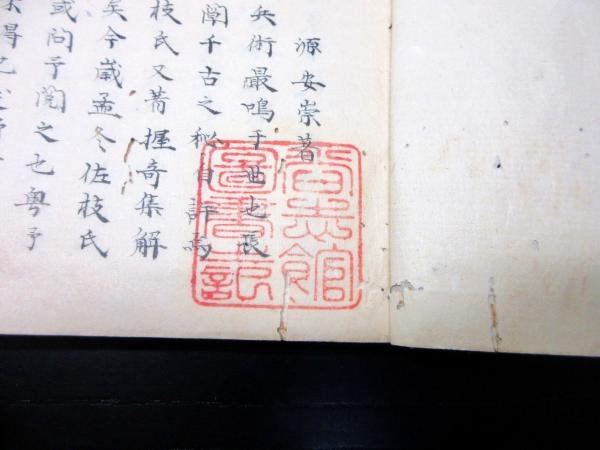 源安崇著
兵術最鳴于世也張
闡千古之秘自許焉
枝氏又著握奇集解
矣今歳孟冬佐枝氏
或問予閲之也粤予
得已
尚志館
圖書記